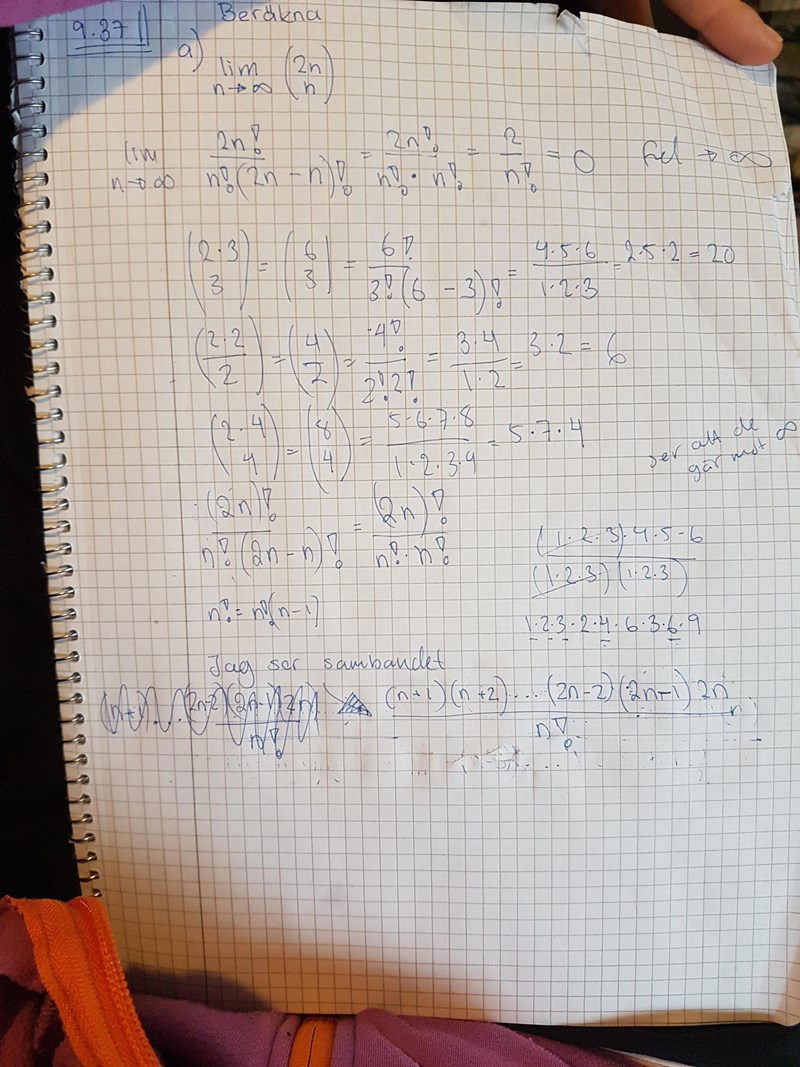 9.37 Beräkna
a) lim n→∞ (2n n)
lim n→∞ 2n!/n!(2n-n)! = 2n!/n!·n! = 2/n! = 0 Fel → ∞
(2·3 3) = (6 3) = 6!/3!(6-3)! = 4·5·6/1·2·3 = 2·5·2 = 20
(2·2/2) = (4/2) = 4!/2!2! = 3·4/1·2 = 3·2 = 6
(2·4 4) = (8 4) = 5·6·7·8/1·2·3·4 = 5·7·4
ser att de går mot ∞
(2n)!/n!(2n-n)! = (2n)!/n!·n!
(1·2·3)·4·5·6/(1·2·3)(1·2·3)
n! = n!(n-1)
1·2·3·2·4·6·3·6·9
Jag ser sambandet
(n+1)(n+2)....(2n-2)(2n-1)2n/n!